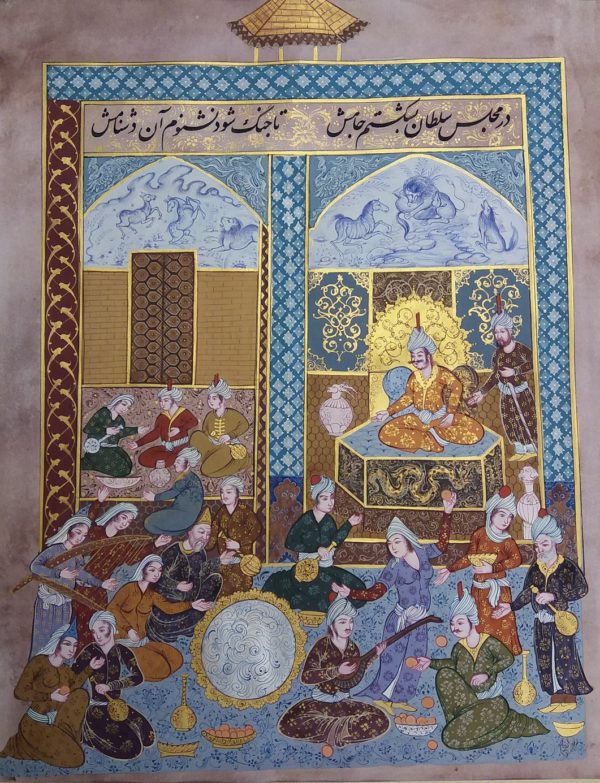 در مجلس سلطان بشکستم جامش تا جنگ شود نشنوم آن دشنامش